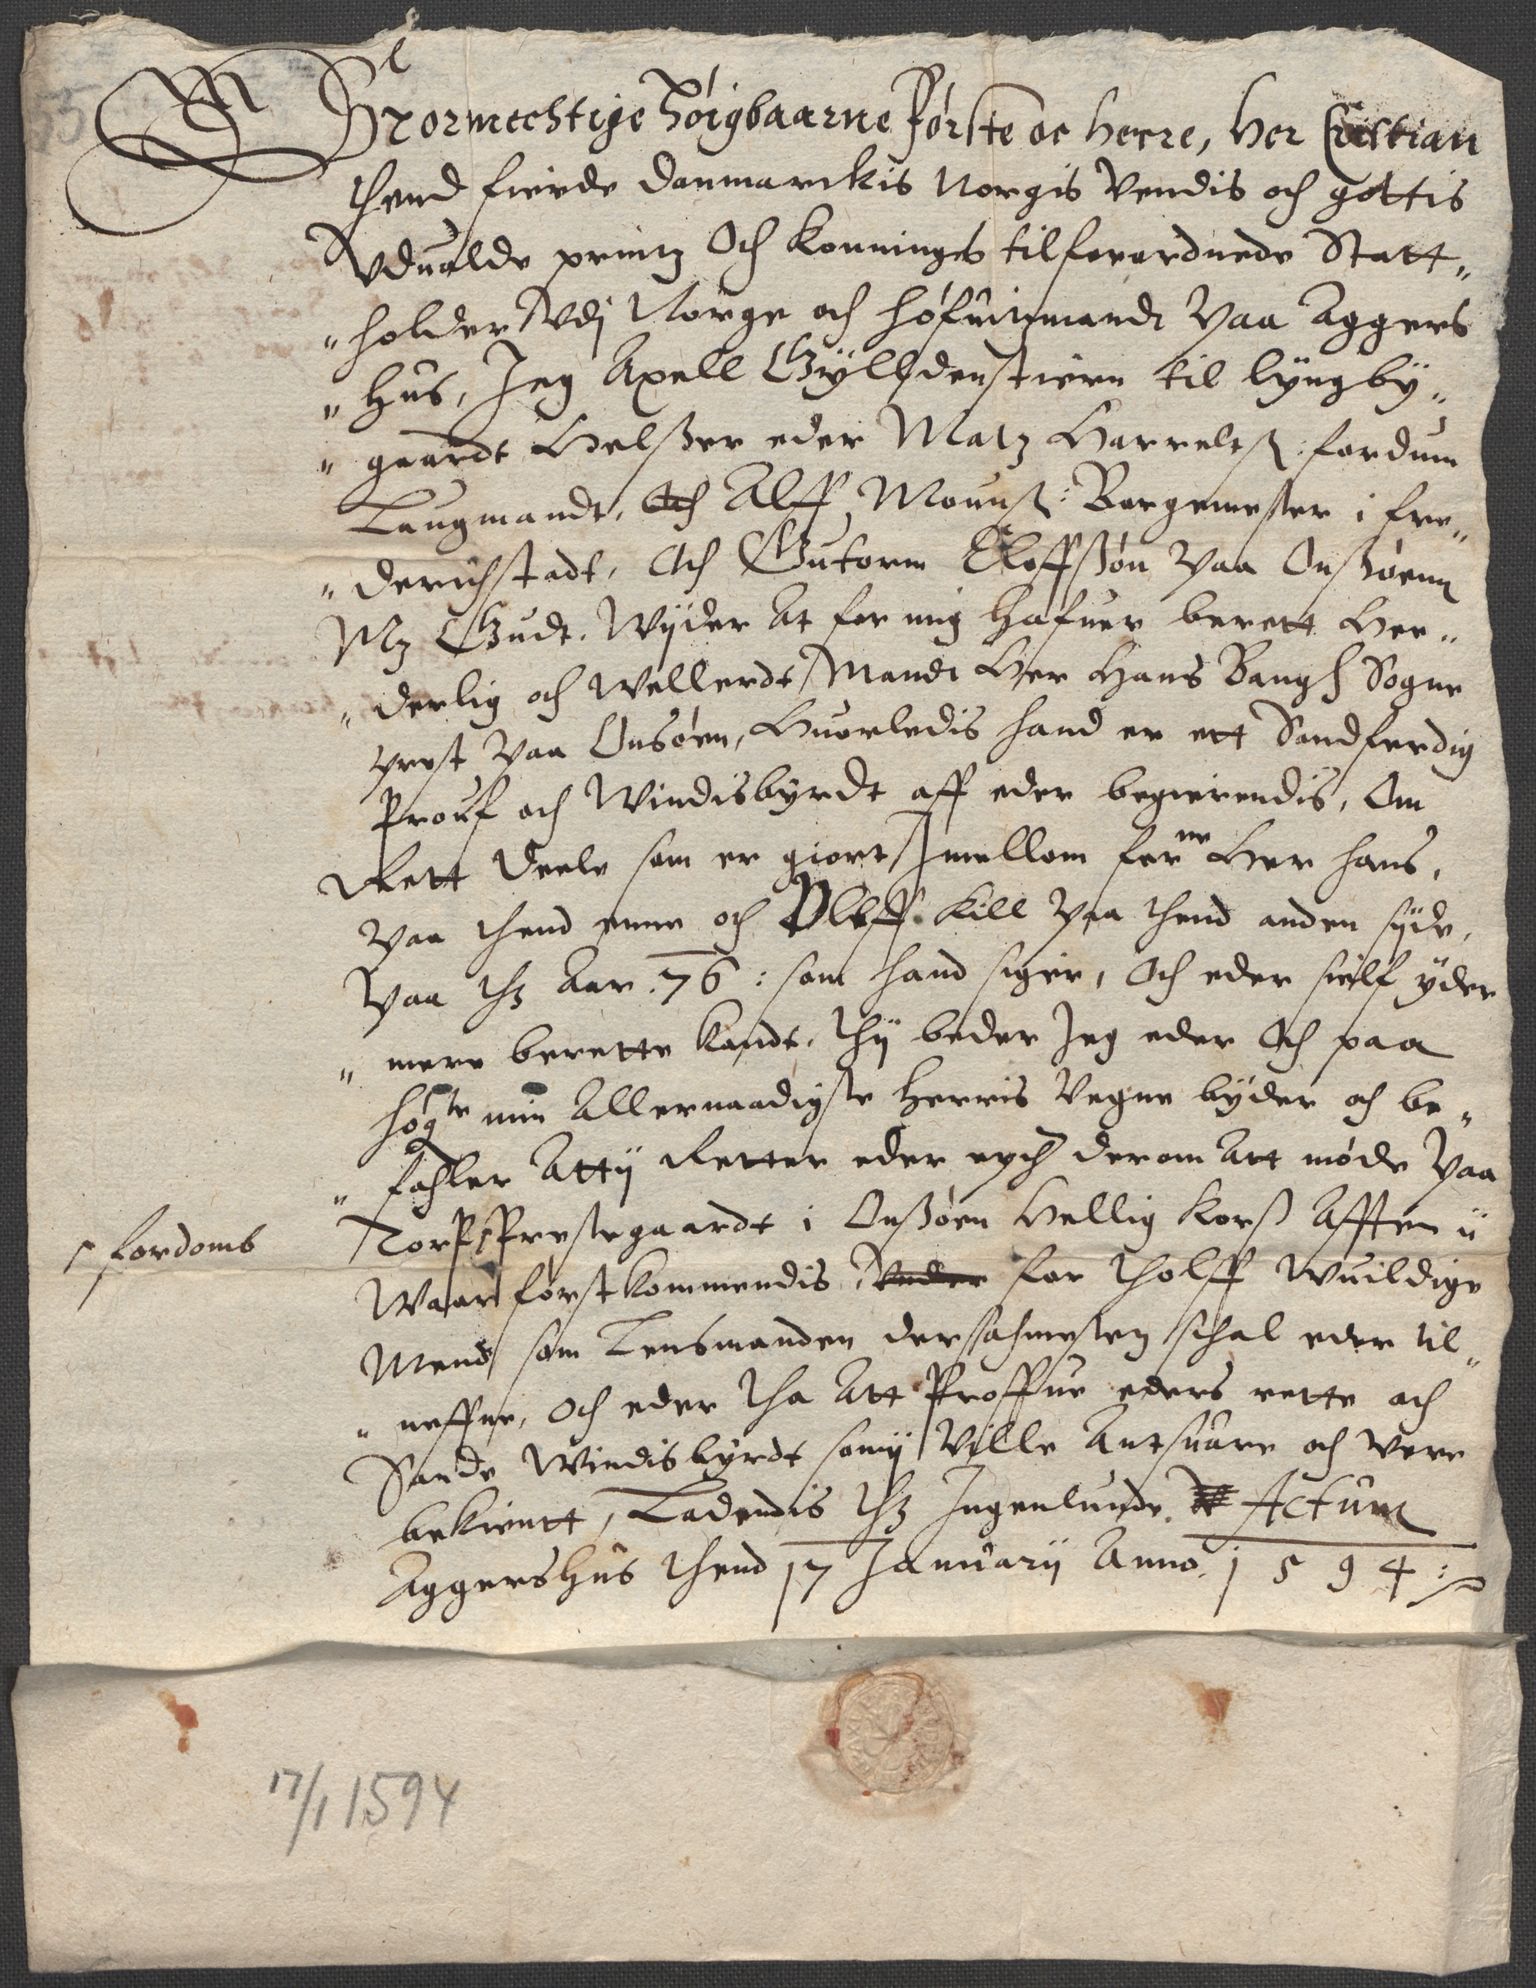 Stormechtige Høigbaarne Første oc Herre, Her Cristian
thend fierde Danmarckis Norgis Vendis och gottis
Vduolde printz Och Konninges tilforordnede Statt„
„holder Vdj Norge och høfuitzmandt paa Aggers
„Hus, Jeg Axell Gÿlldenstiern til lÿngbÿ„
„gaardt Helsßer eder Matz Harreltß: fordum
Laugmandt, Och Alff Mounß: Borgemester i fre„
„derichstadt, Och Guttorm Eloffßøn paa Onßøenn
Mz Gudt. Wÿder At for mig Hafuer berett Her„
„derlig och Wellerdt Mandt Her Hans Bangß Sogne
prest paa Onsøen, Huorledis hand er ett Sandferdig
Prouf och Windisbyrdt aff eder begierendis, Om
Rett Deele som er giort Jmellom forne Her Hans,
paa thend enne och Oleff Kill paa thend anden sÿde,
paa thz Aar .76: som hand siger, Och eder sielf ÿder
„mere berette Kandt, Thÿ beder Jeg eder Och paa
høgte min Allernaadigste Herris Vegne bÿder och be„
„fahler Attÿ Retter eder epch derom Att møde paa
Torp Prestegaardt i Onßøen Hellig Korß Afften ii
/ fordoms
Waar førstkommendis, Vnder for tholff Wuildige
Mend som Lensmanden dersahmesten schal eder til„
„neffne, Och eder tha Att Proffue eders rette och
Sande Windisbyrdt somÿ Ville Antsuare och Vere
bekiendt, Ladendis thz Jngenlunde. Actum
AggersHus thend 17 Januarij Anno. 1594:
17/1 1594